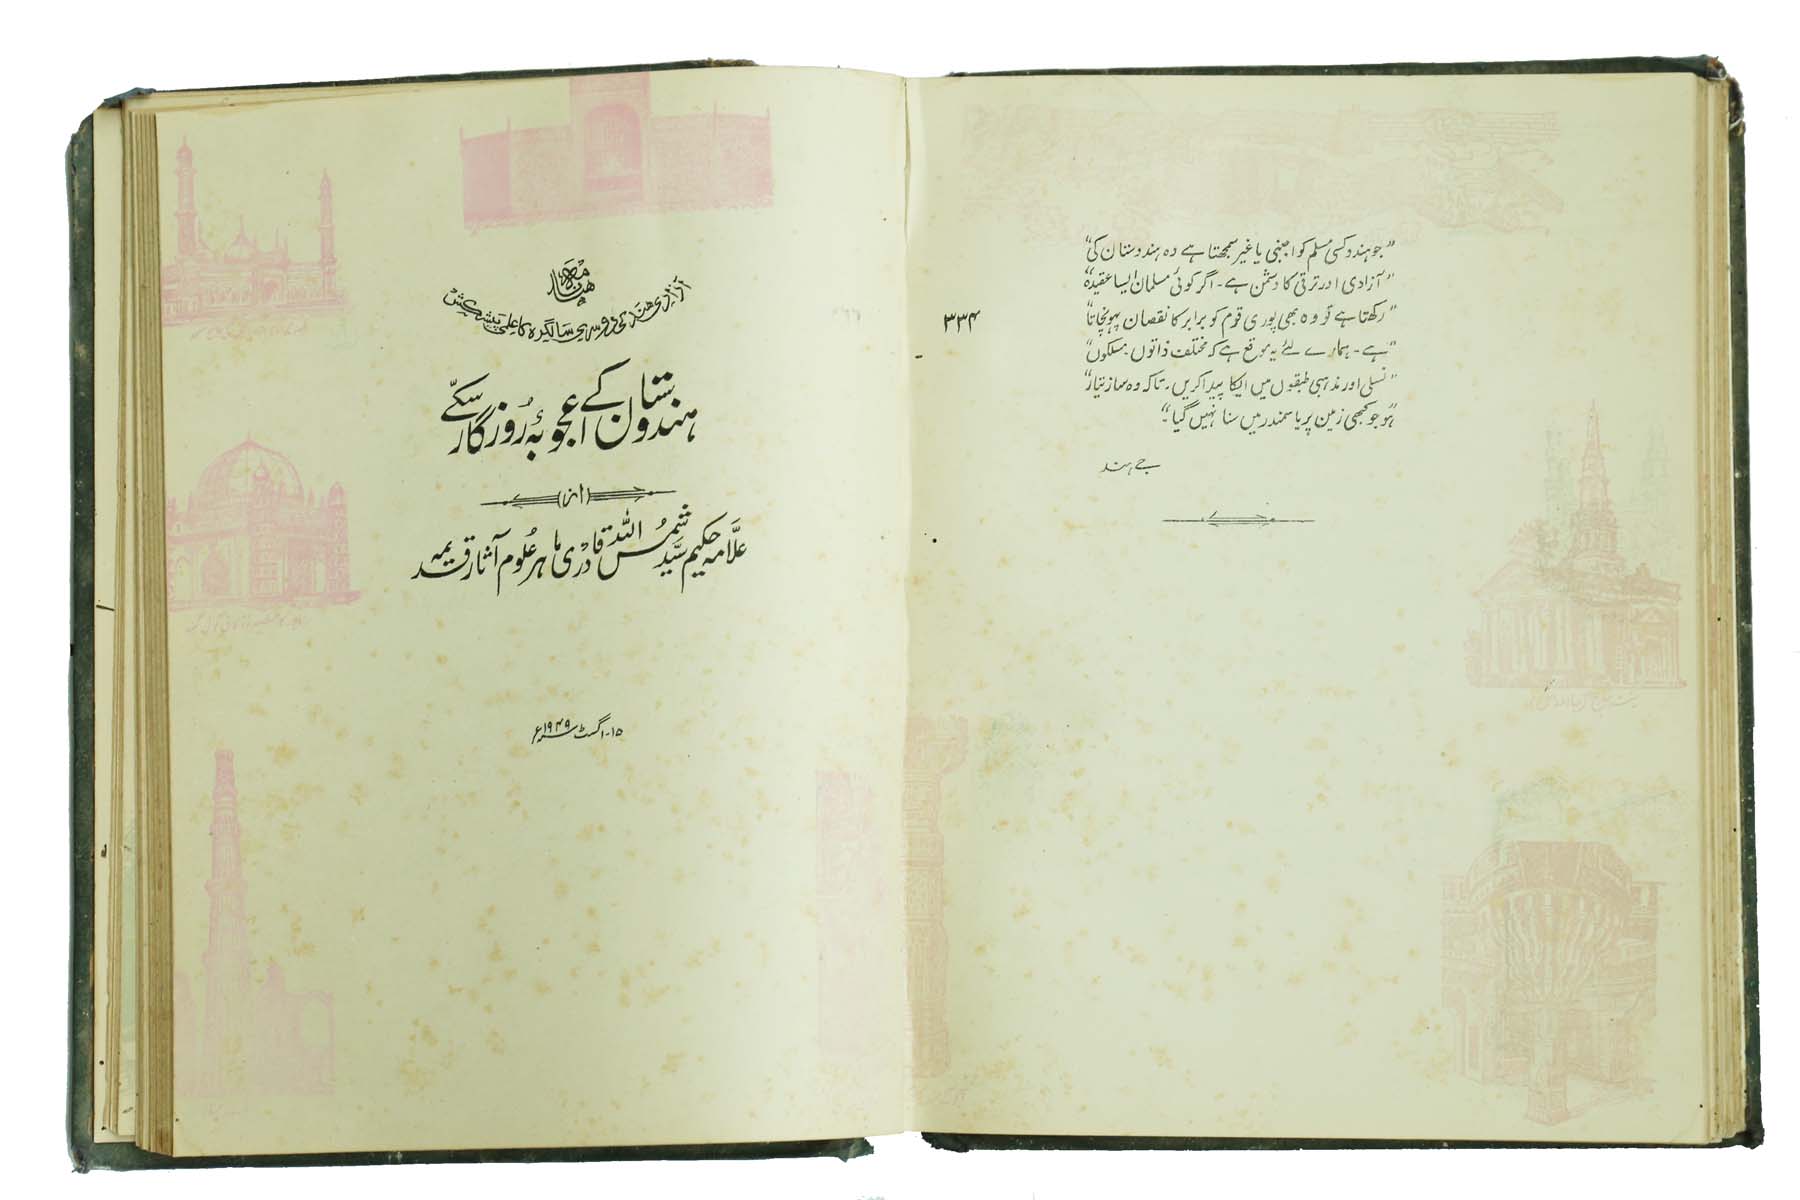 ۳۳۴
"جو ہندو کسی مسلم کو اجنبی یا غیر سمجھتا ہے وہ ہندوستان کی"
"آزادی اور ترقی کا دشمن ہے۔ اگر کوئی مسلمان ایسا عقیدہ"
"رکھتا ہے تو وہ بھی پوری قوم کو برابر کا نقصان پہونچاتا"
"ہے۔ ہمارے لئے یہ موقع ہے کہ مختلف ذاتوں۔ مسلکوں"
"نسلی اور مذہبی طبقوں میں ایکا پیدا کریں۔ تاکہ وہ سماز تیار"
"ہو جو کبھی زمین پر یا سمندر میں سنا نہیں گیا"۔
جے ہند
آزادی ہند کی دوسری سالگرہ کا علمی پیشکش
ہندوستان کے اعجوبۂ روزگار سکّے
(از)
علّامہ حکیم سیّد شمس اللہ قادری ماہر علوم آثار قدیمہ
۱۵۔ اگست ۱۹۴۹ء